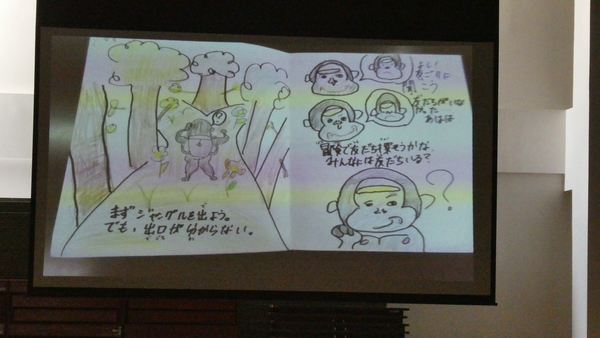 まずジャングルを出よう。
でも、出口がわからない。
?
よし!
友ごりに
聞こう
友だちがいな
かった
あはは
冒険で友だち探そうかな。
みんなには友だちいる?
?